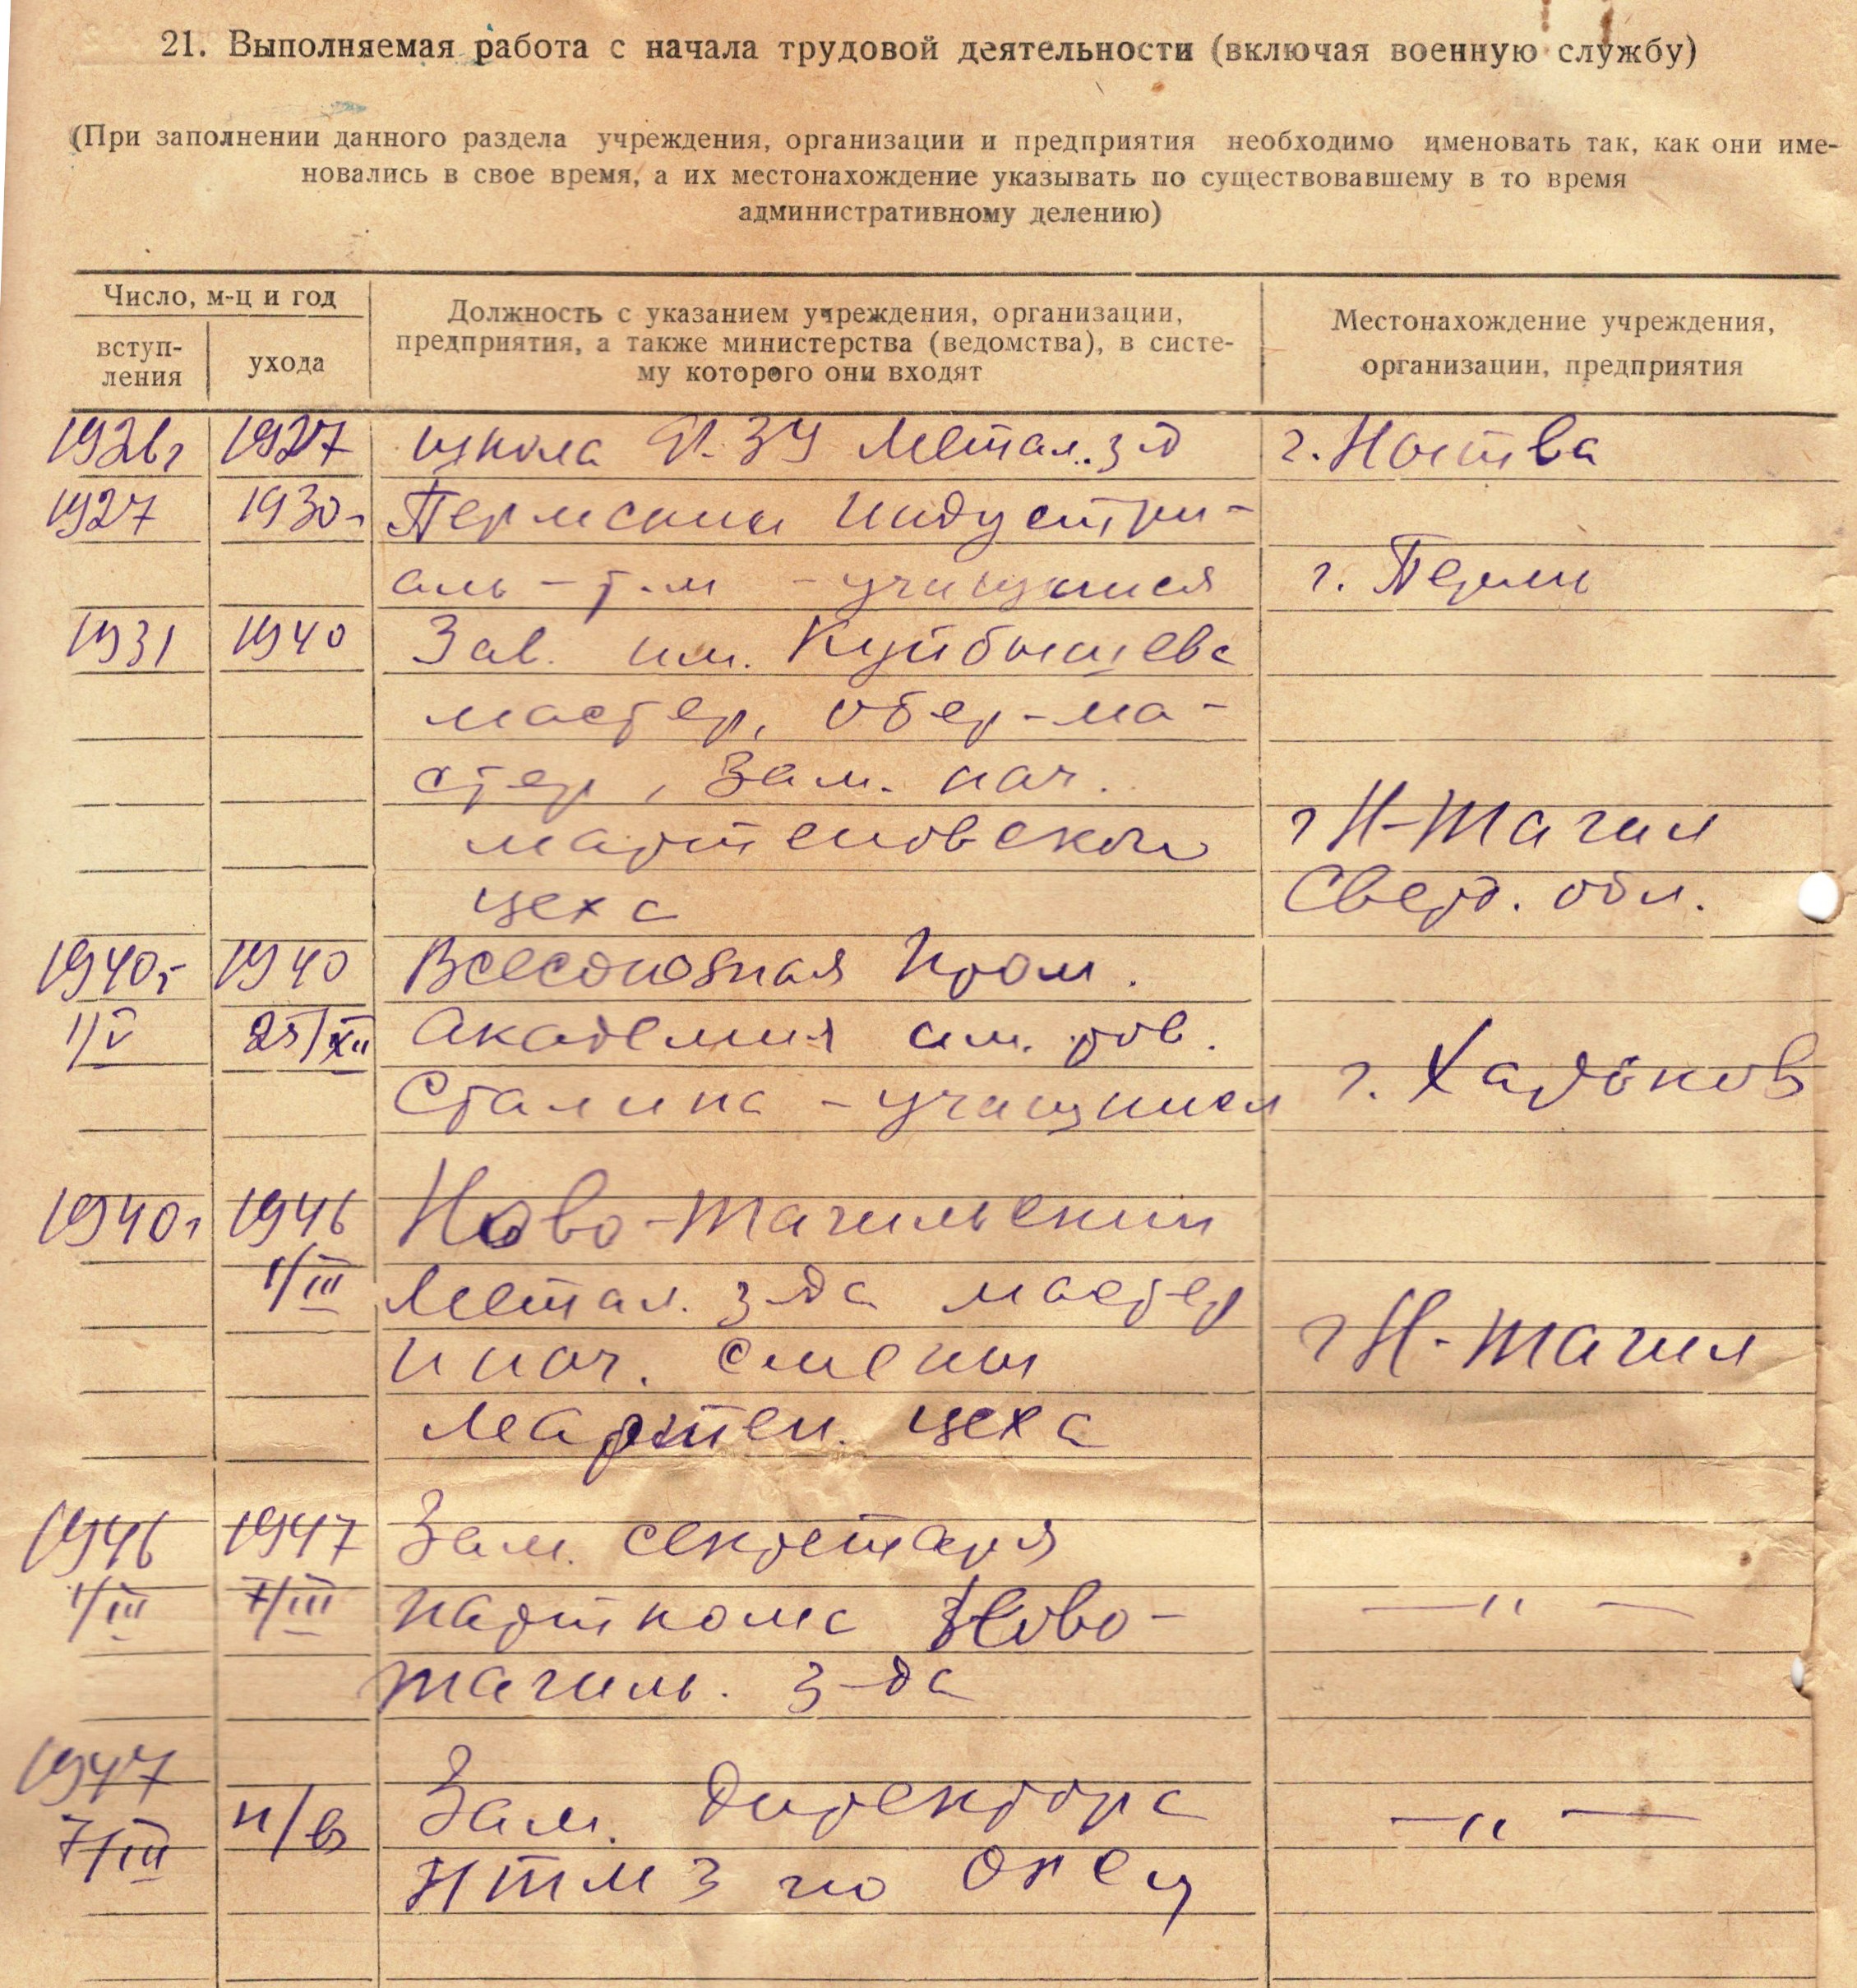 21. Выполняемая работа с начала трудовой деятельности (включая военную службу)
(При заполнении данного раздела учреждения, организации и предприятия необходимо именовать так, как они име-
новались в свое время, а их местонахождение указывать по существовавшему в то время
административному делению)
Число, м-ц и год
вступ-
ления
ухода
Должность с указанием учреждения, организации,
предприятия, а также министерства (ведомства), в систе-
му которого они входят
Местонахождение учреждения,
организации, предприятия
1926г 1927 школа Ф.ЗУ Метал. з-д г. Нытва
1927 1930г Пермский Индустри-
аль-т.м - учащийся г. Пермь
1931 1940 Зав. им. Куйбышева
мастер, обер-ма-
стер, Зам. нач.
мартеновского г Н-Тагил
цеха Сверд. обл.
1940г 1940 Всесоюзная Пром.
1/V 25/XII Академия им. тов.
Сталина - учащийся г. Харьков
1940г 1946 Ново-Тагильский
1/III Метал. з-да мастер
и нач. смены г Н-Тагил
Мартен. цеха
1946 1947 Зам. секретаря
1/III 7/III парткома Ново- —〃—
тагиль. з-да
1947
7/III н/в Зам. Директора —〃—
НТМЗ по